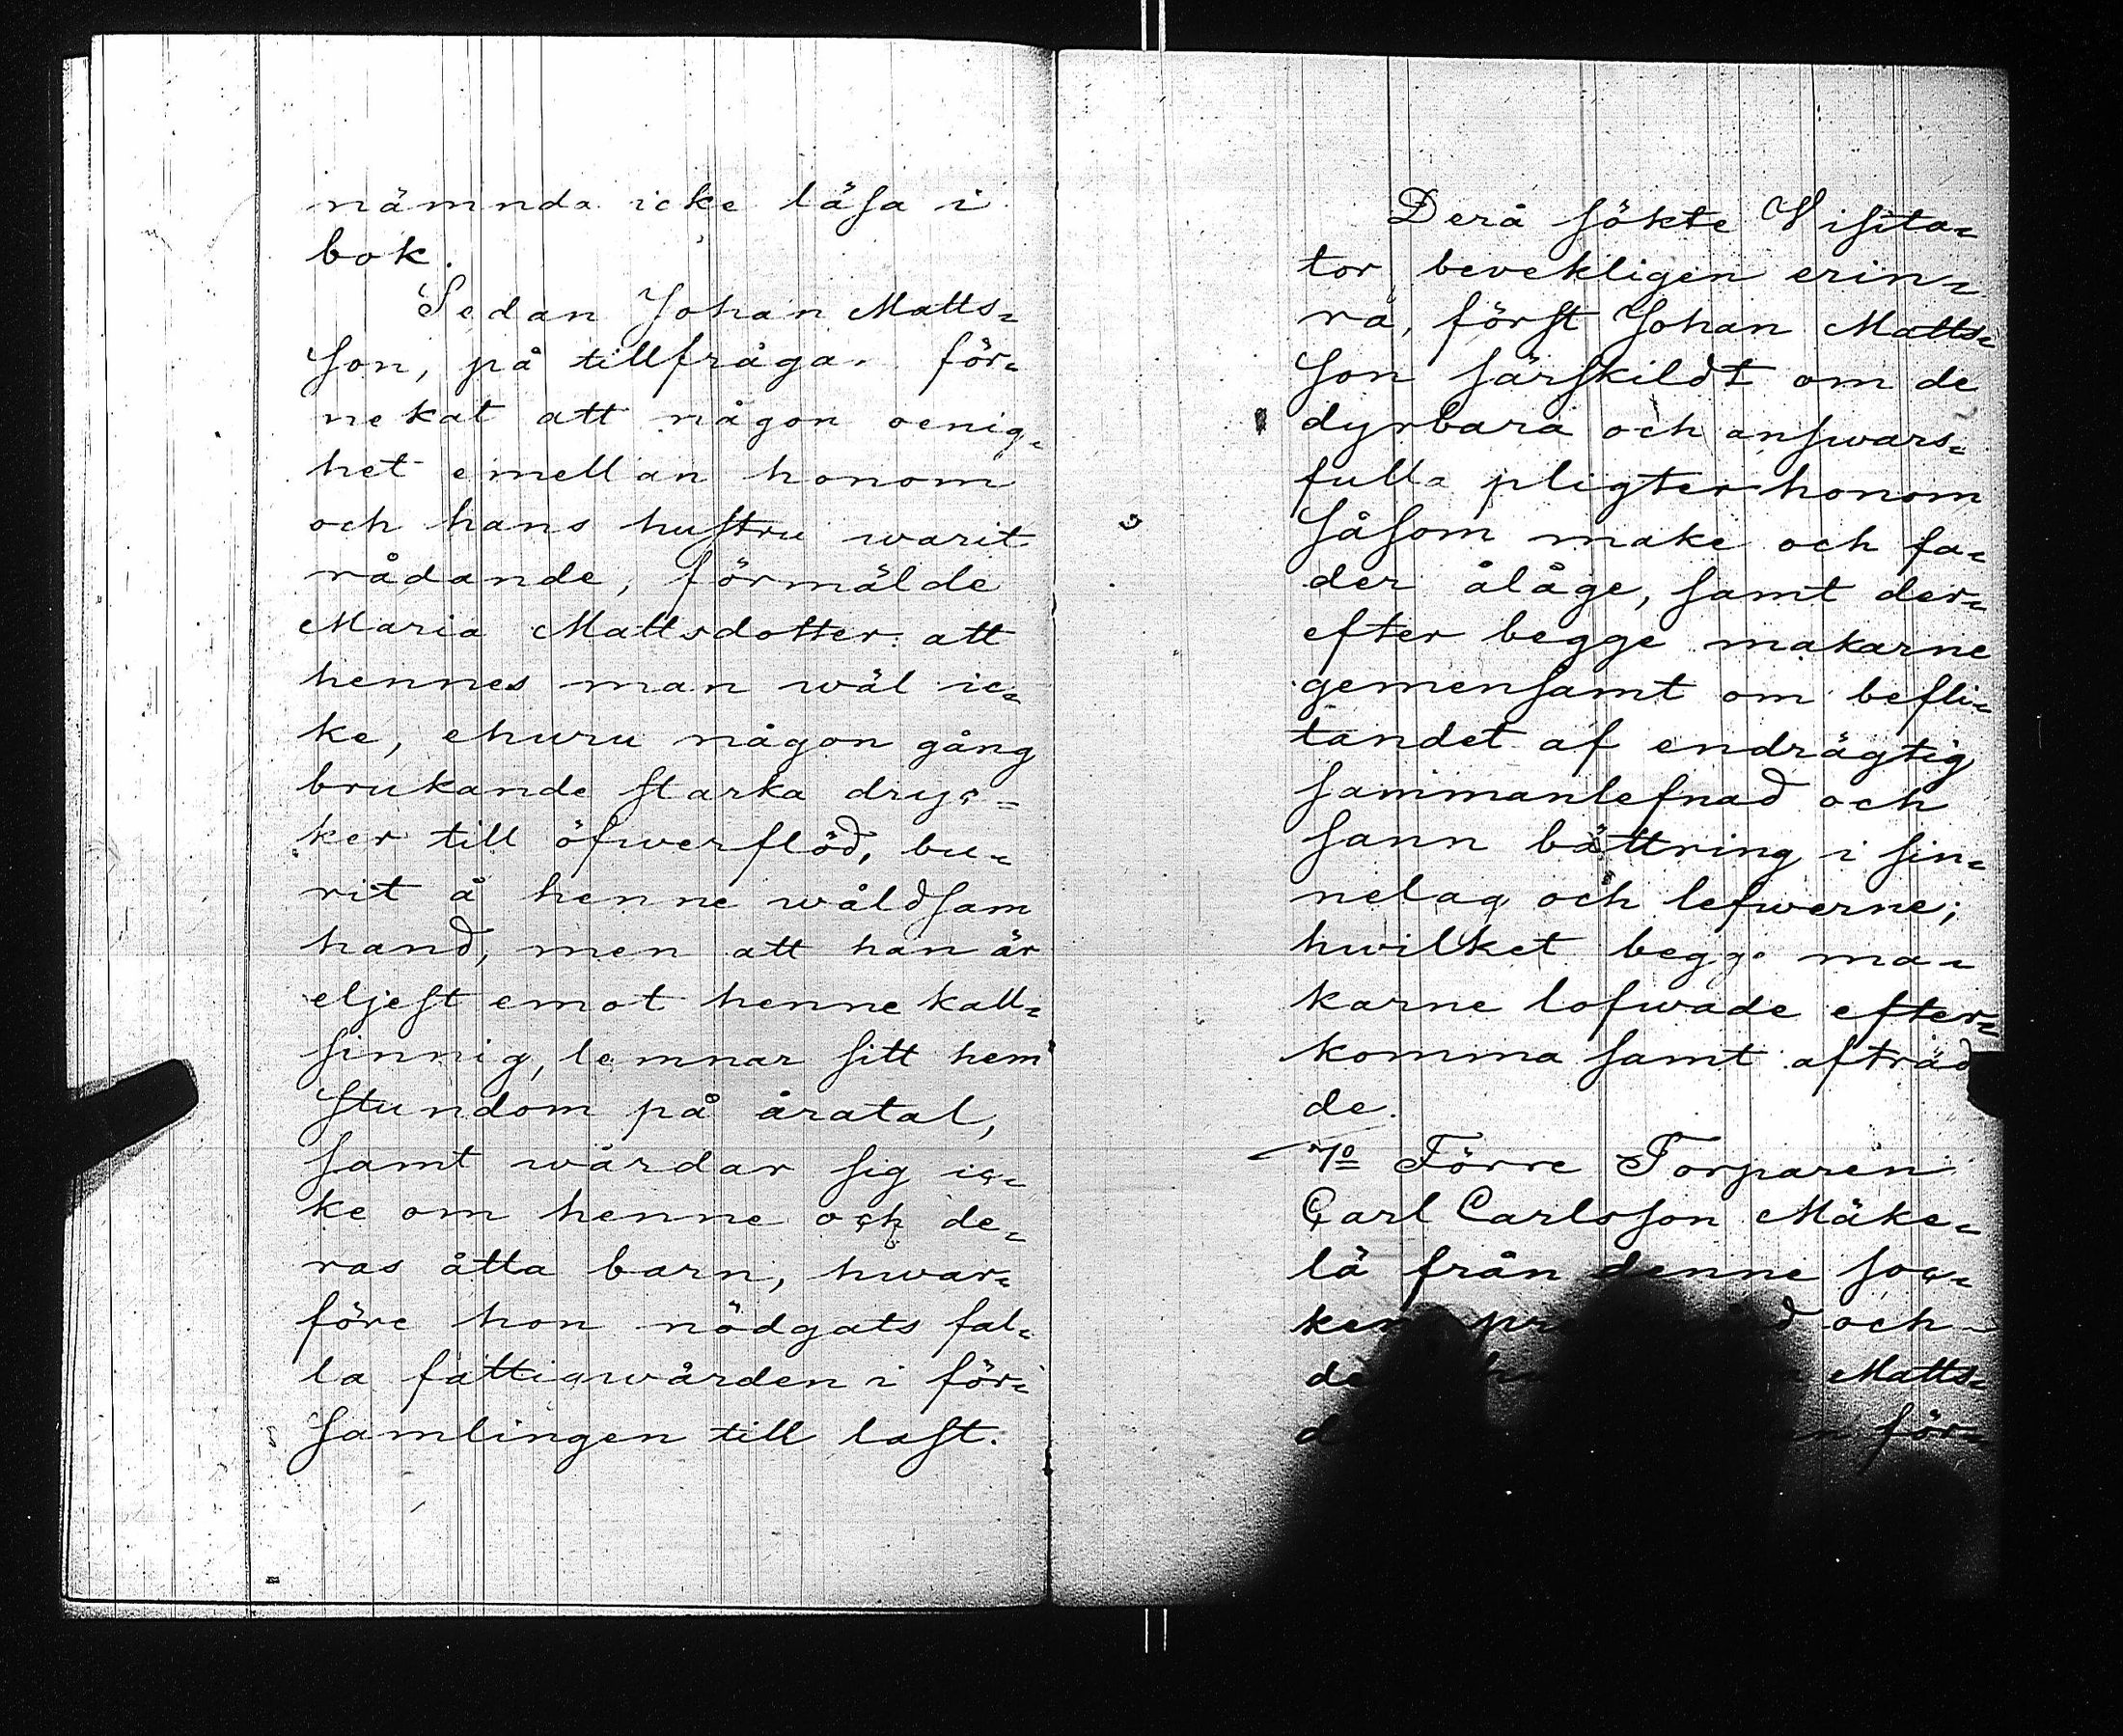 nämnda icke läsa i
bok.
Sedan Johan Matts=
son, på tillfrågan för=
nekat att någon oenig=
het emellan honom
och hans hustru warit
rådande, förmälde
Maria Mattsdotter att
hennes man wäl ic=
ke, ehuru någon gång
brukande starka dryc=
ker till öfwerflöd, bu=
rit å henne wåldsam
hand, men att han är
eljest emot henne kall=
sinnig, lemnar sitt hem
stundom på åratal,
samt wårdar sig ic=
ke om henne och de=
ras åtta barn, hwar=
före hon nödgats fal=
la fattigwården i för=
samlingen till last.
Derå sökte Visita=
tor bevekligen erin=
ra, först Johan Matts=
son särskildt om de
dyrbara och answars=
fulla pligter honom
såsom make och fa=
der ålåge, samt der=
efter begge makarne
gemensamt om befli=
tandet af endrägtig
sammanlefnad och
sann bättring i sin=
nelag och lefwerne;
hwilket begge ma=
karne lofwade efter=
komma samt afträd
de.
7o Förre Torparen
Carl Carlsson Mäke=
lä från denne soc=
ken och
Matts=
för=